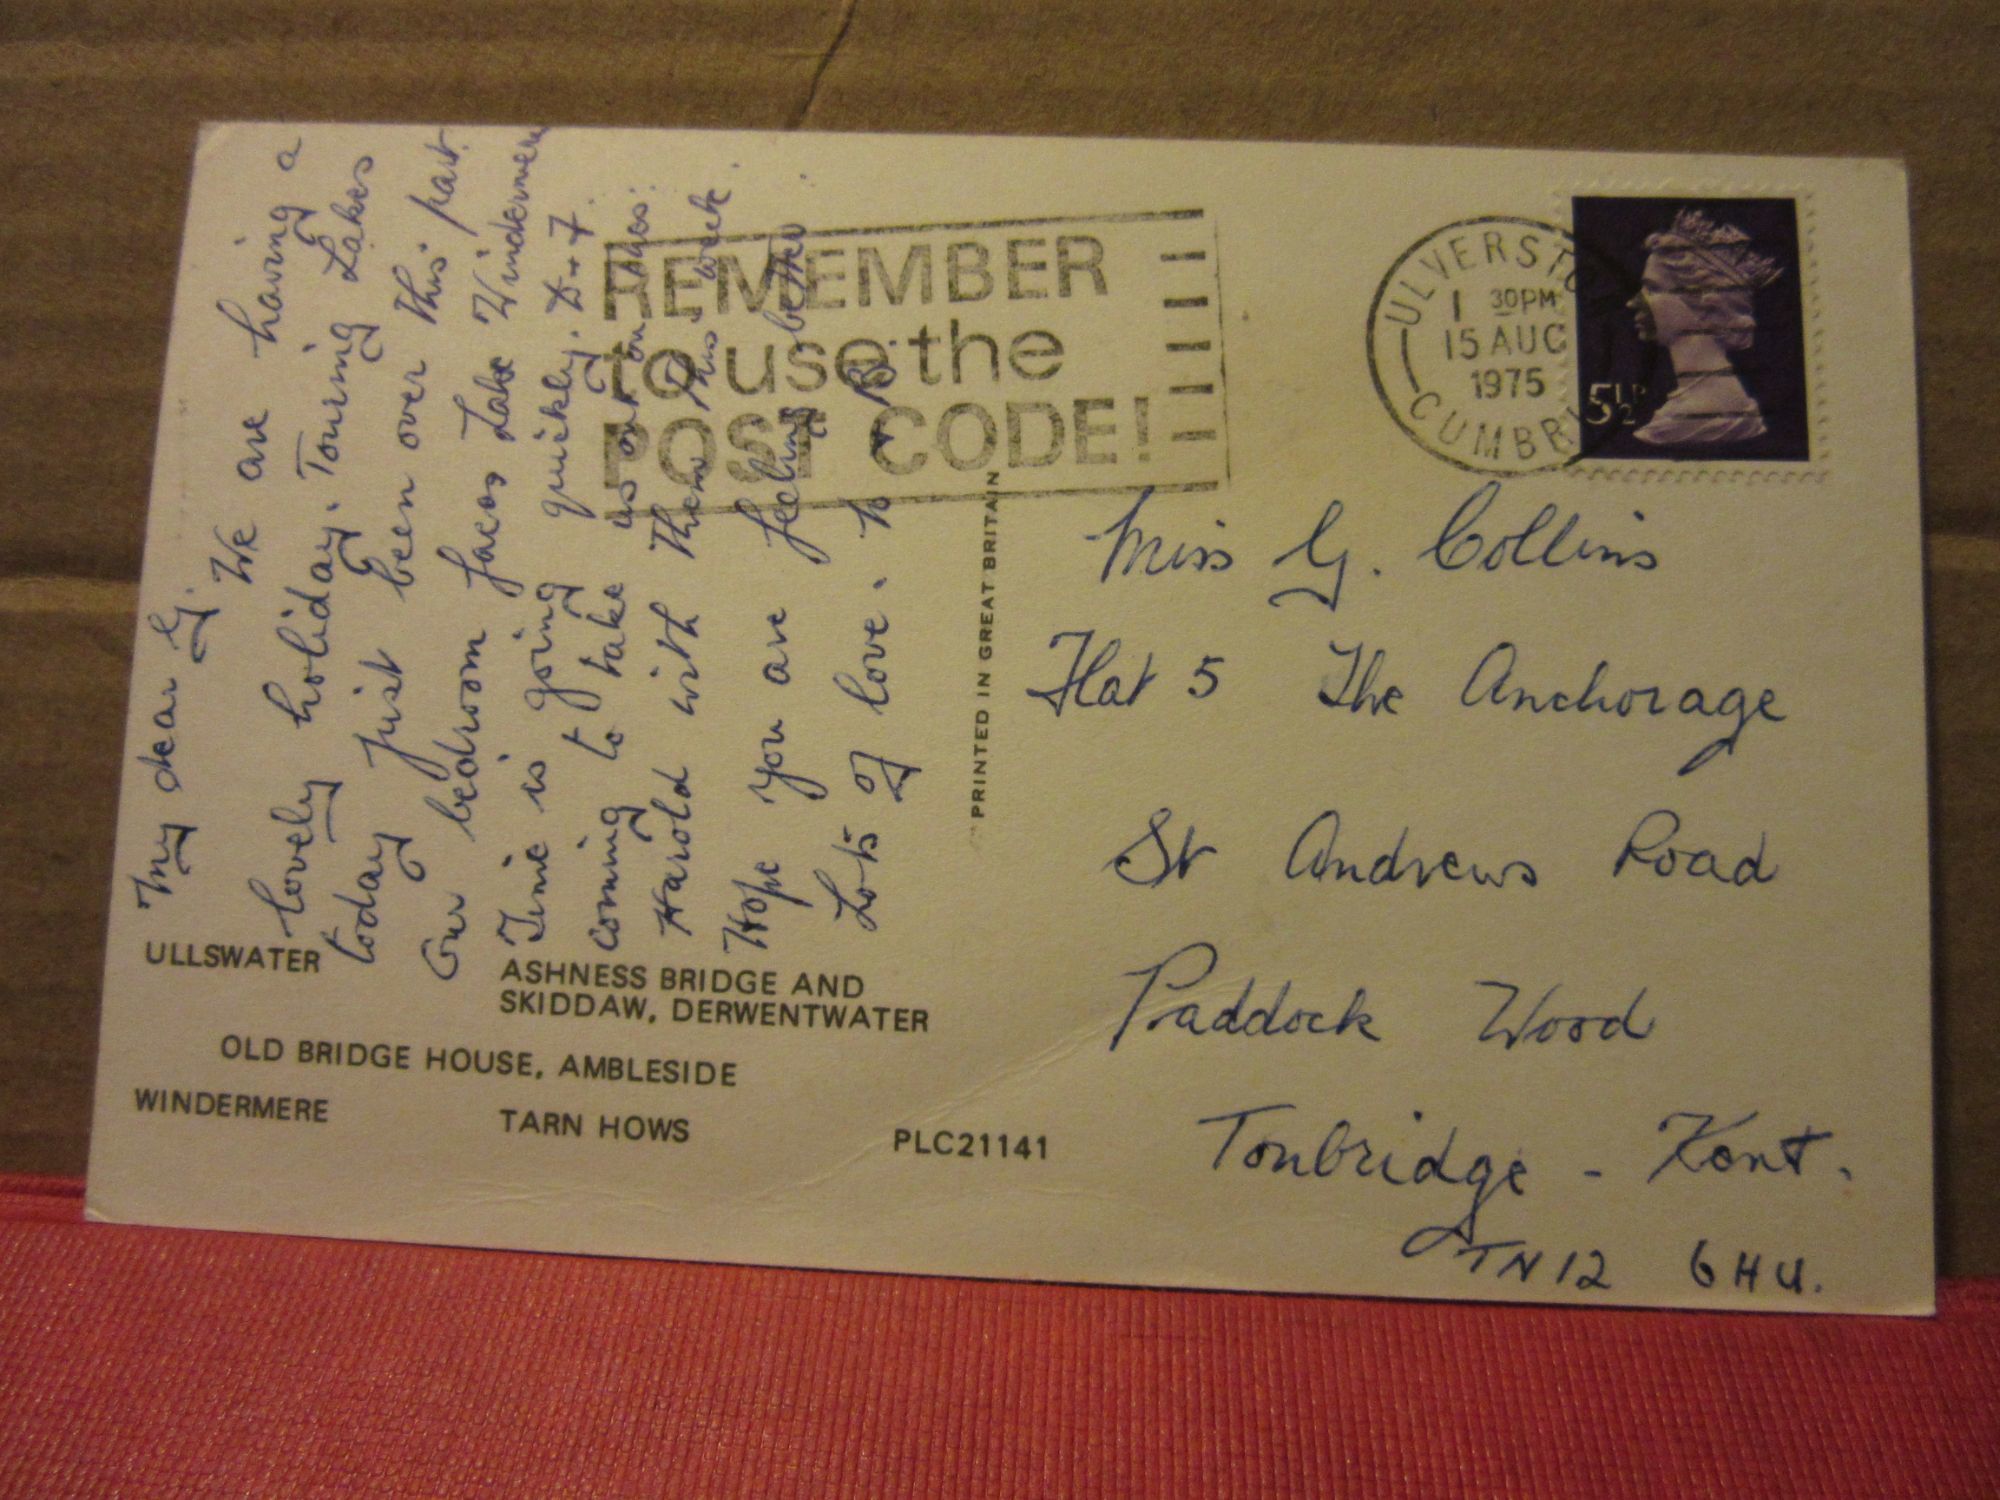 My dear G. We are having a
lovely holiday. Touring Lakes
today just been over this part.
Our bedroom faces Lake Windermere
Time is going quickly. D + F.
coming to take us out on
Harold with them this week.
Hope you are feeling better.
Lots of love. M & B.
ULLSWATER
ASHNESS BRIDGE AND
SKIDDAW, DERWENTWATER
OLD BRIDGE HOUSE, AMBLESIDE
WINDERMERE
TARN HOWS
PLC21141
PRINTED IN GREAT BRITAIN
REMEMBER
to use the
POST CODE!
ULVERSTO
1 30PM
15 AUG
1975
CUMBRI
5½P
Miss G. Collins
Flat 5 The Anchorage
St Andrews Road
Paddock Wood
Tonbridge - Kent.
TN12 6HU.